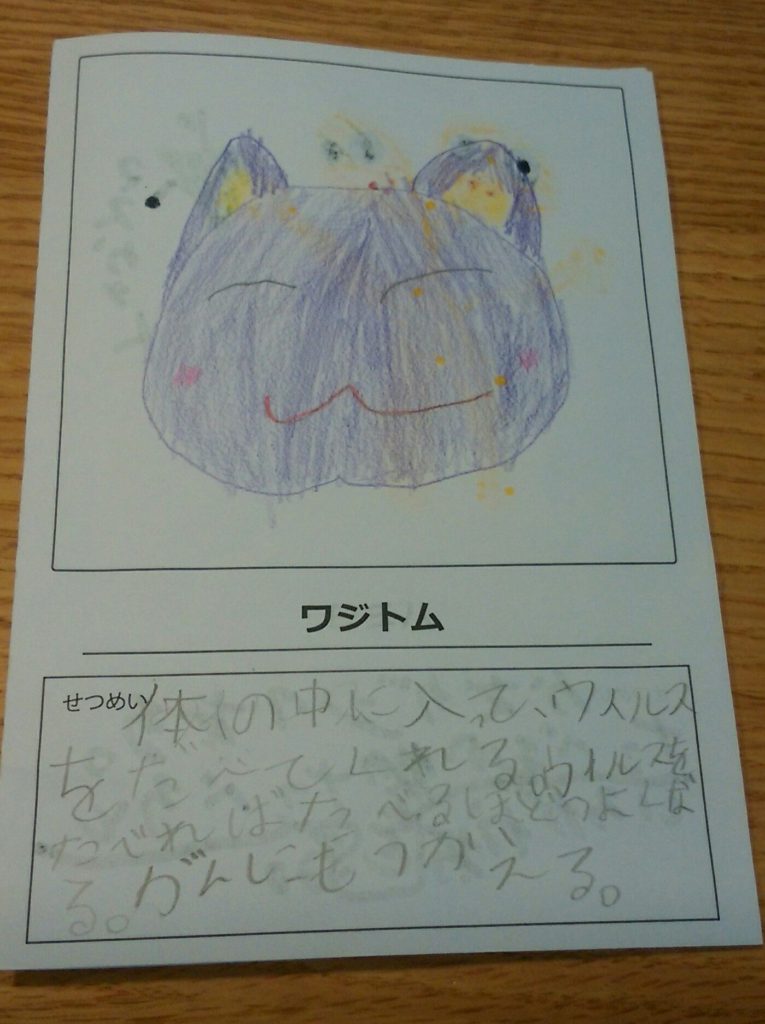 ワジトム
せつめい
体の中に入って、ウイルス
をたべてくれる。ウイルスを
たべればたべるほどつよくな
る。がんにもつかえる。